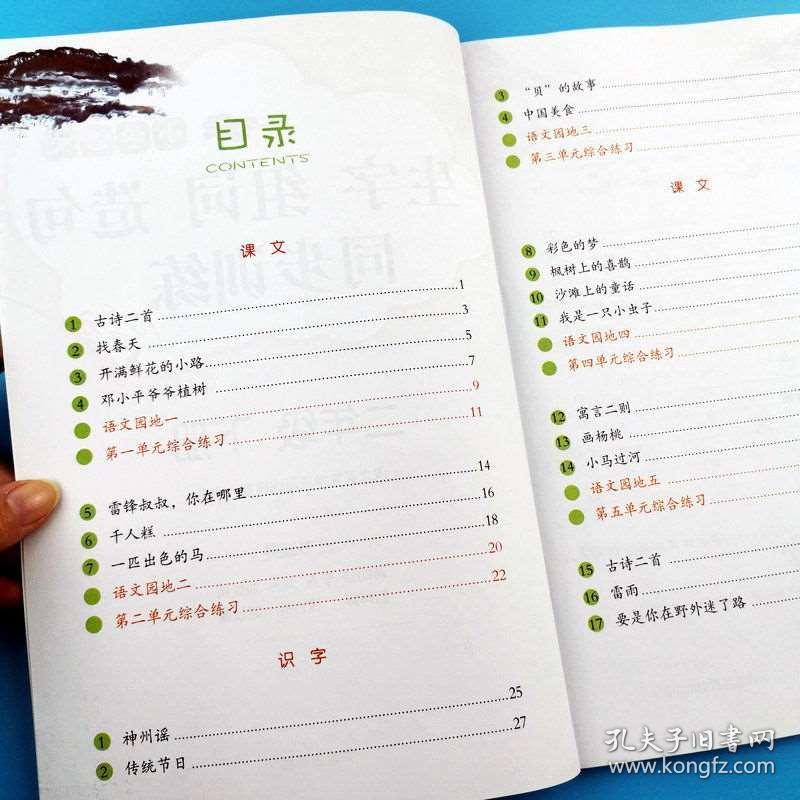 目录
CONTENTS
课文
1 古诗二首 1
2 找春天 3
3 开满鲜花的小路 5
4 邓小平爷爷植树 7
语文园地一 9
第一单元综合练习 11
5 雷锋叔叔，你在哪里 14
6 千人糕 16
7 一匹出色的马 18
语文园地二 20
第二单元综合练习 22
识字
1 神州谣 25
2 传统节日 27
3 “贝”的故事
4 中国美食
语文园地三
第三单元综合练习
课文
8 彩色的梦
9 枫树上的喜鹊
10 沙滩上的童话
11 我是一只小虫子
语文园地四
第四单元综合练习
12 寓言二则
13 画杨桃
14 小马过河
语文园地五
第五单元综合练习
15 古诗二首
16 雷雨
17 要是你在野外迷了路
孔夫子旧书网
www.kongfz.com